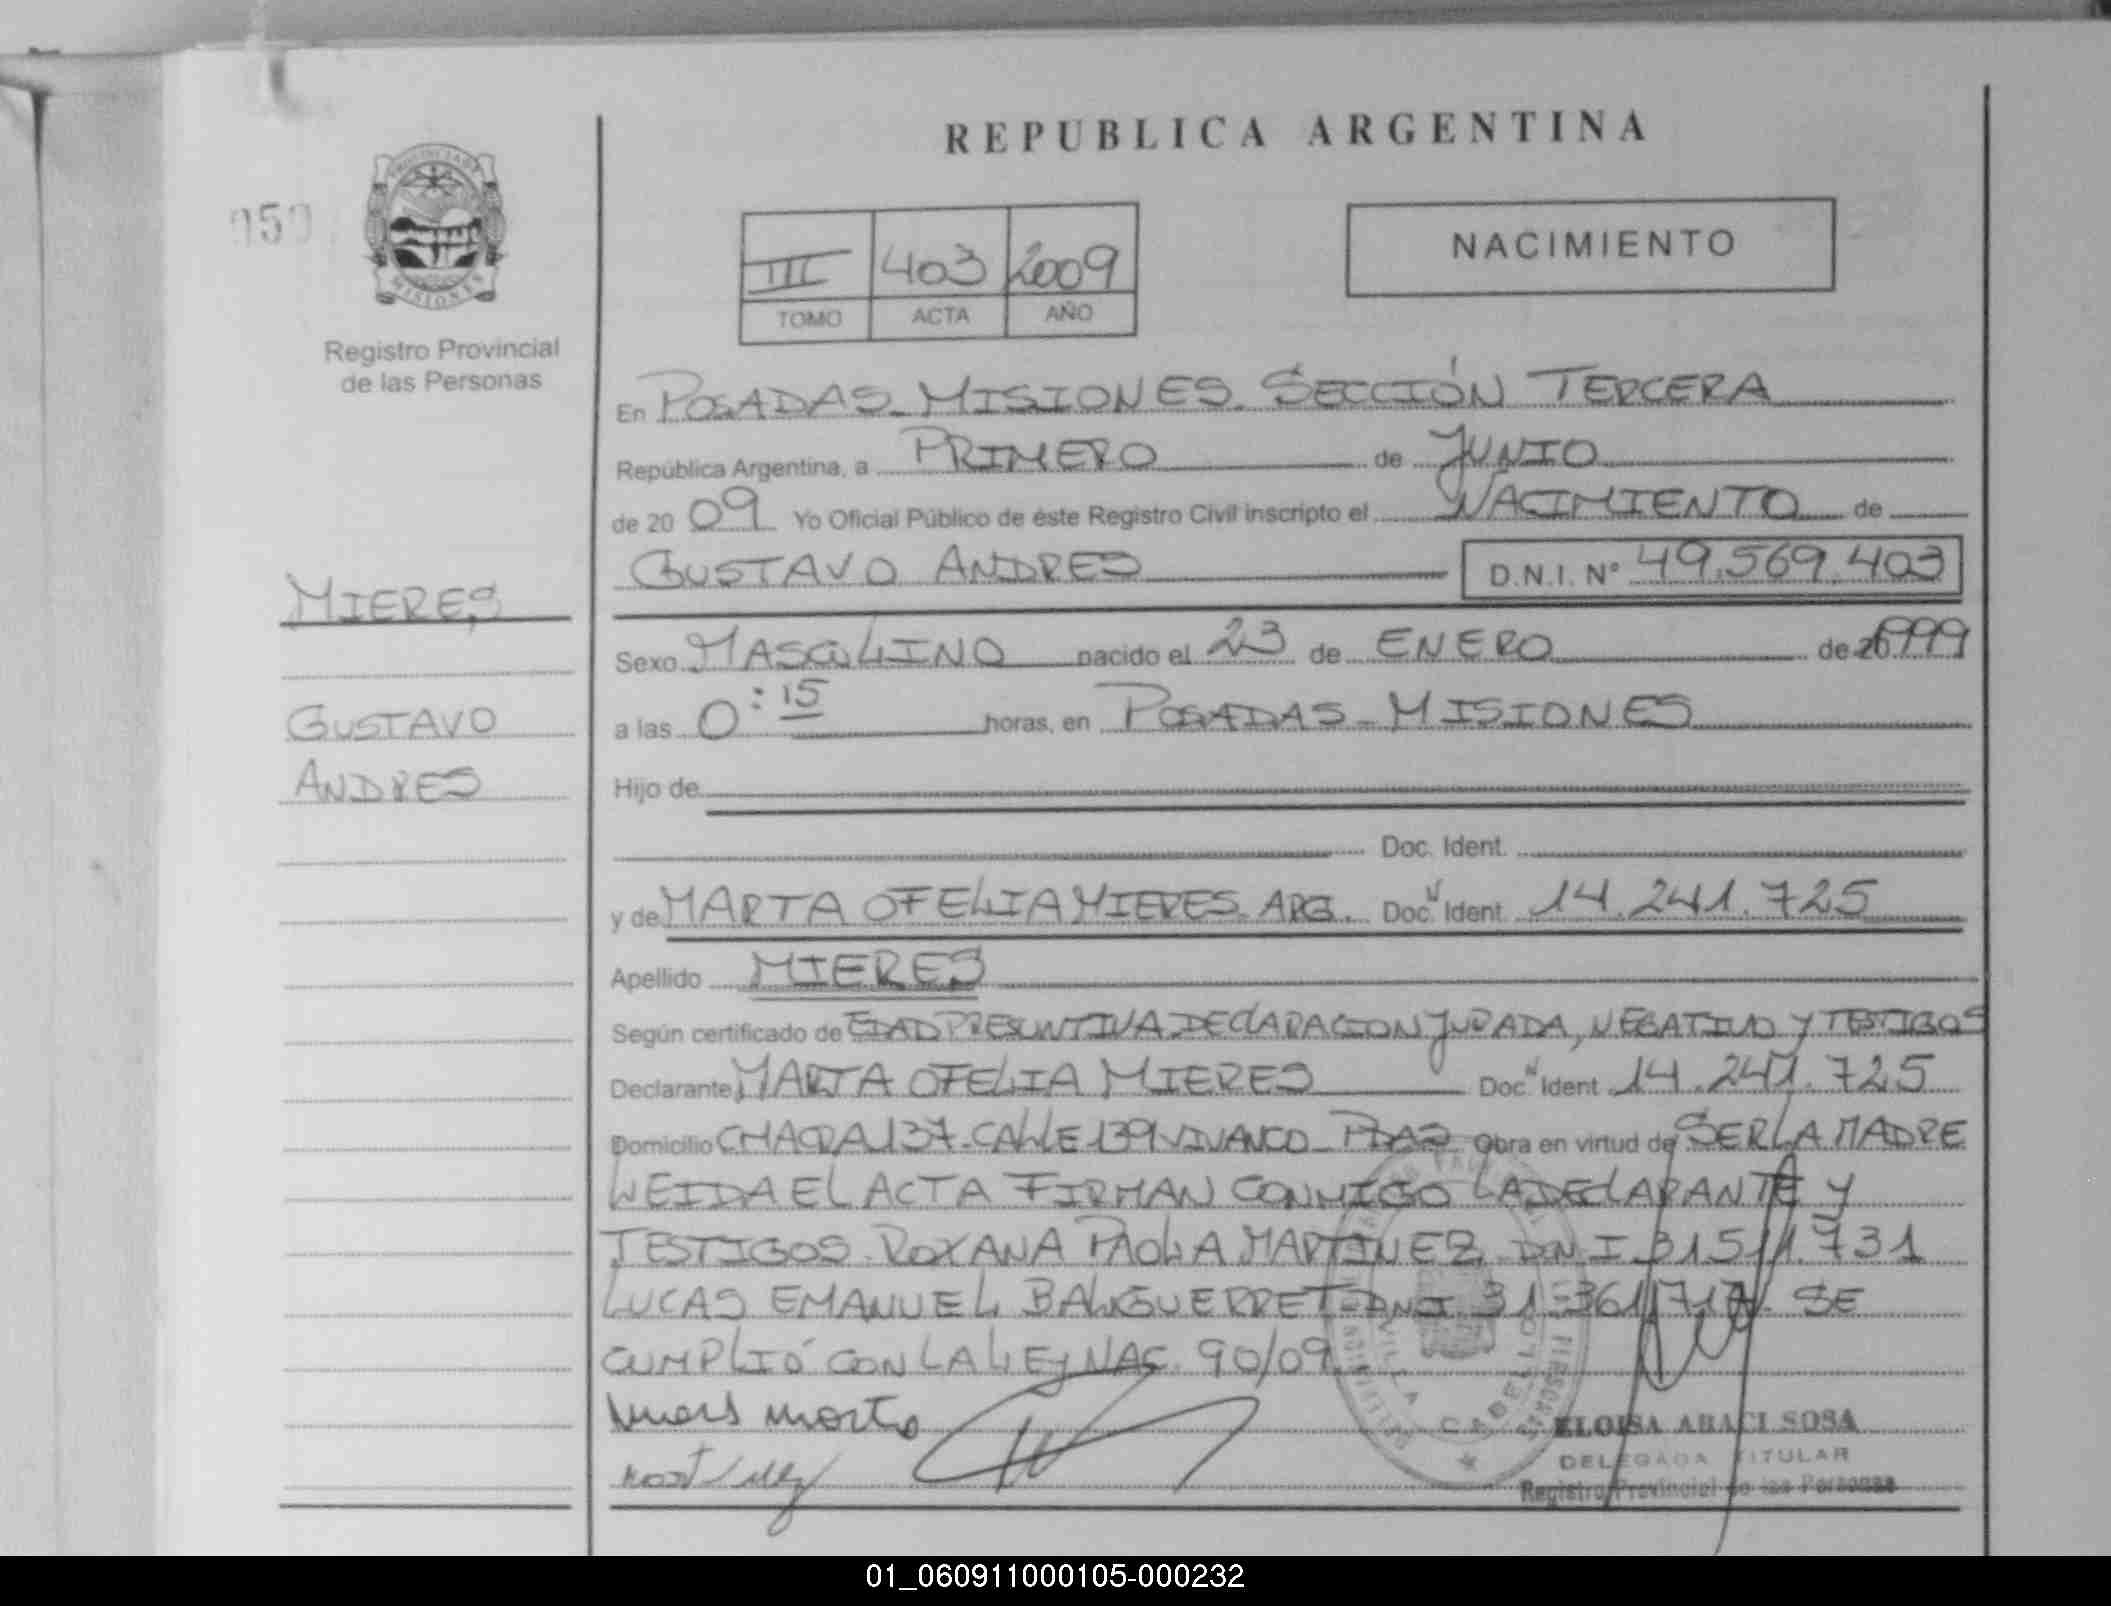 REPUBLICA ARGENTINA
059
PROVINCIA DE
MISIONES
Registro Provincial
de las Personas
III 403 2009
TOMO ACTA AÑO
NACIMIENTO
En POSADAS-MISIONES. SECCIÓN TERCERA
República Argentina, a PRIMERO de JUNIO
de 20 09 Yo Oficial Público de éste Registro Civil inscripto el NACIMIENTO de
GUSTAVO ANDRES D.N.I. Nº 49.569.403
MIERES
GUSTAVO
ANDRES
Sexo MASCULINO nacido el 23 de ENERO de 1999
a las 0:15 horas, en POSADAS-MISIONES
Hijo de
Doc. Ident.
y de MARTA OFELIA MIERES. ARG. Doc. Ident. 14.241.725
Apellido MIERES
Según certificado de EDAD PRESUNTIVA DECLARACION JURADA, NEGATIVO Y TESTIGOS
Declarante MARTA OFELIA MIERES Doc. Ident. 14.241.725
Domicilio CHACRA 137-CALLE 139 VIVANCO-PDAS Obra en virtud de SER LA MADRE
LEIDA EL ACTA FIRMAN CONMIGO LA DECLARANTE Y
TESTIGOS. ROXANA PAOLA MARTINEZ DNI 31511.731
LUCAS EMANUEL BALGUERRET-DNI 31-361.717. SE
CUMPLIÓ CON LA LEY NAC. 90/09
VILLA CABELLO
ELOISA ABACI SOSA
DELEGADA TITULAR
Registro Provincial de las Personas
01_060911000105-000232